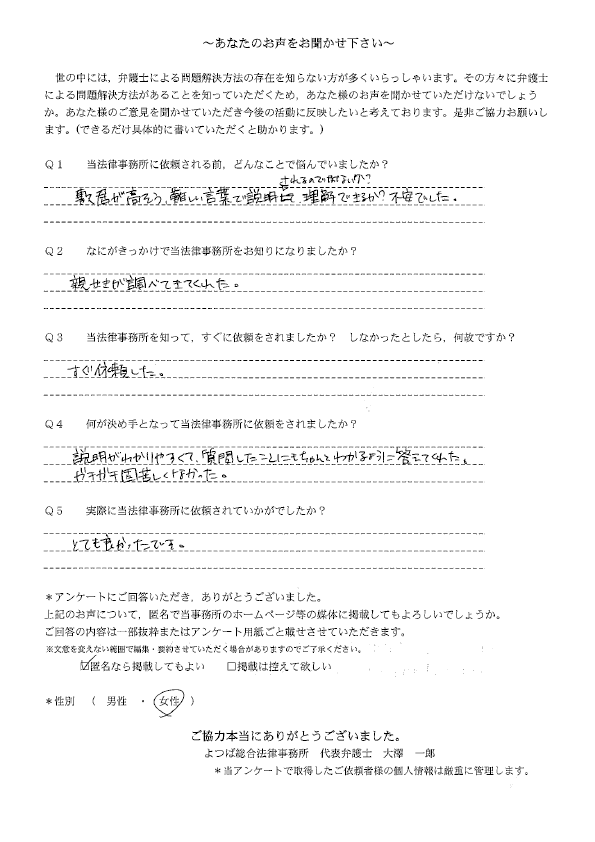 ～あなたのお声をお聞かせ下さい～
世の中には，弁護士による問題解決方法の存在を知らない方が多くいらっしゃいます。その方々に弁護士
による問題解決方法があることを知っていただくため，あなた様のお声を聞かせていただけないでしょう
か。あなた様のご意見を聞かせていただき今後の活動に反映したいと考えております。是非ご協力お願いし
ます。（できるだけ具体的に書いていただくと助かります。）
Ｑ１　当法律事務所に依頼される前，どんなことで悩んでいましたか？
されるので
敷居が高そう、難しい言葉で説明 理解できるか？不安でした。
Ｑ２　なにがきっかけで当法律事務所をお知りになりましたか？
親せきが調べてきてくれた。
Ｑ３　当法律事務所を知って，すぐに依頼をされましたか？　しなかったとしたら，何故ですか？
すぐ依頼した。
Ｑ４　何が決め手となって当法律事務所に依頼をされましたか？
説明がわかりやすくて、質問したことにもちゃんとわかるように答えてくれた。
ガチガチ固苦しくなかった。
Ｑ５　実際に当法律事務所に依頼されていかがでしたか？
とても良かったです。
＊アンケートにご回答いただき，ありがとうございました。
上記のお声について，匿名で当事務所のホームページ等の媒体に掲載してもよろしいでしょうか。
ご回答の内容は一部抜粋またはアンケート用紙ごと載せさせていただきます。
※文意を変えない範囲で編集・要約させていただく場合がありますのでご了承ください。
☑匿名なら掲載してもよい　□掲載は控えて欲しい
＊性別　（　男性　・　女性　）
ご協力本当にありがとうございました。
よつば総合法律事務所　代表弁護士　大澤　一郎
＊当アンケートで取得したご依頼者様の個人情報は厳重に管理します。